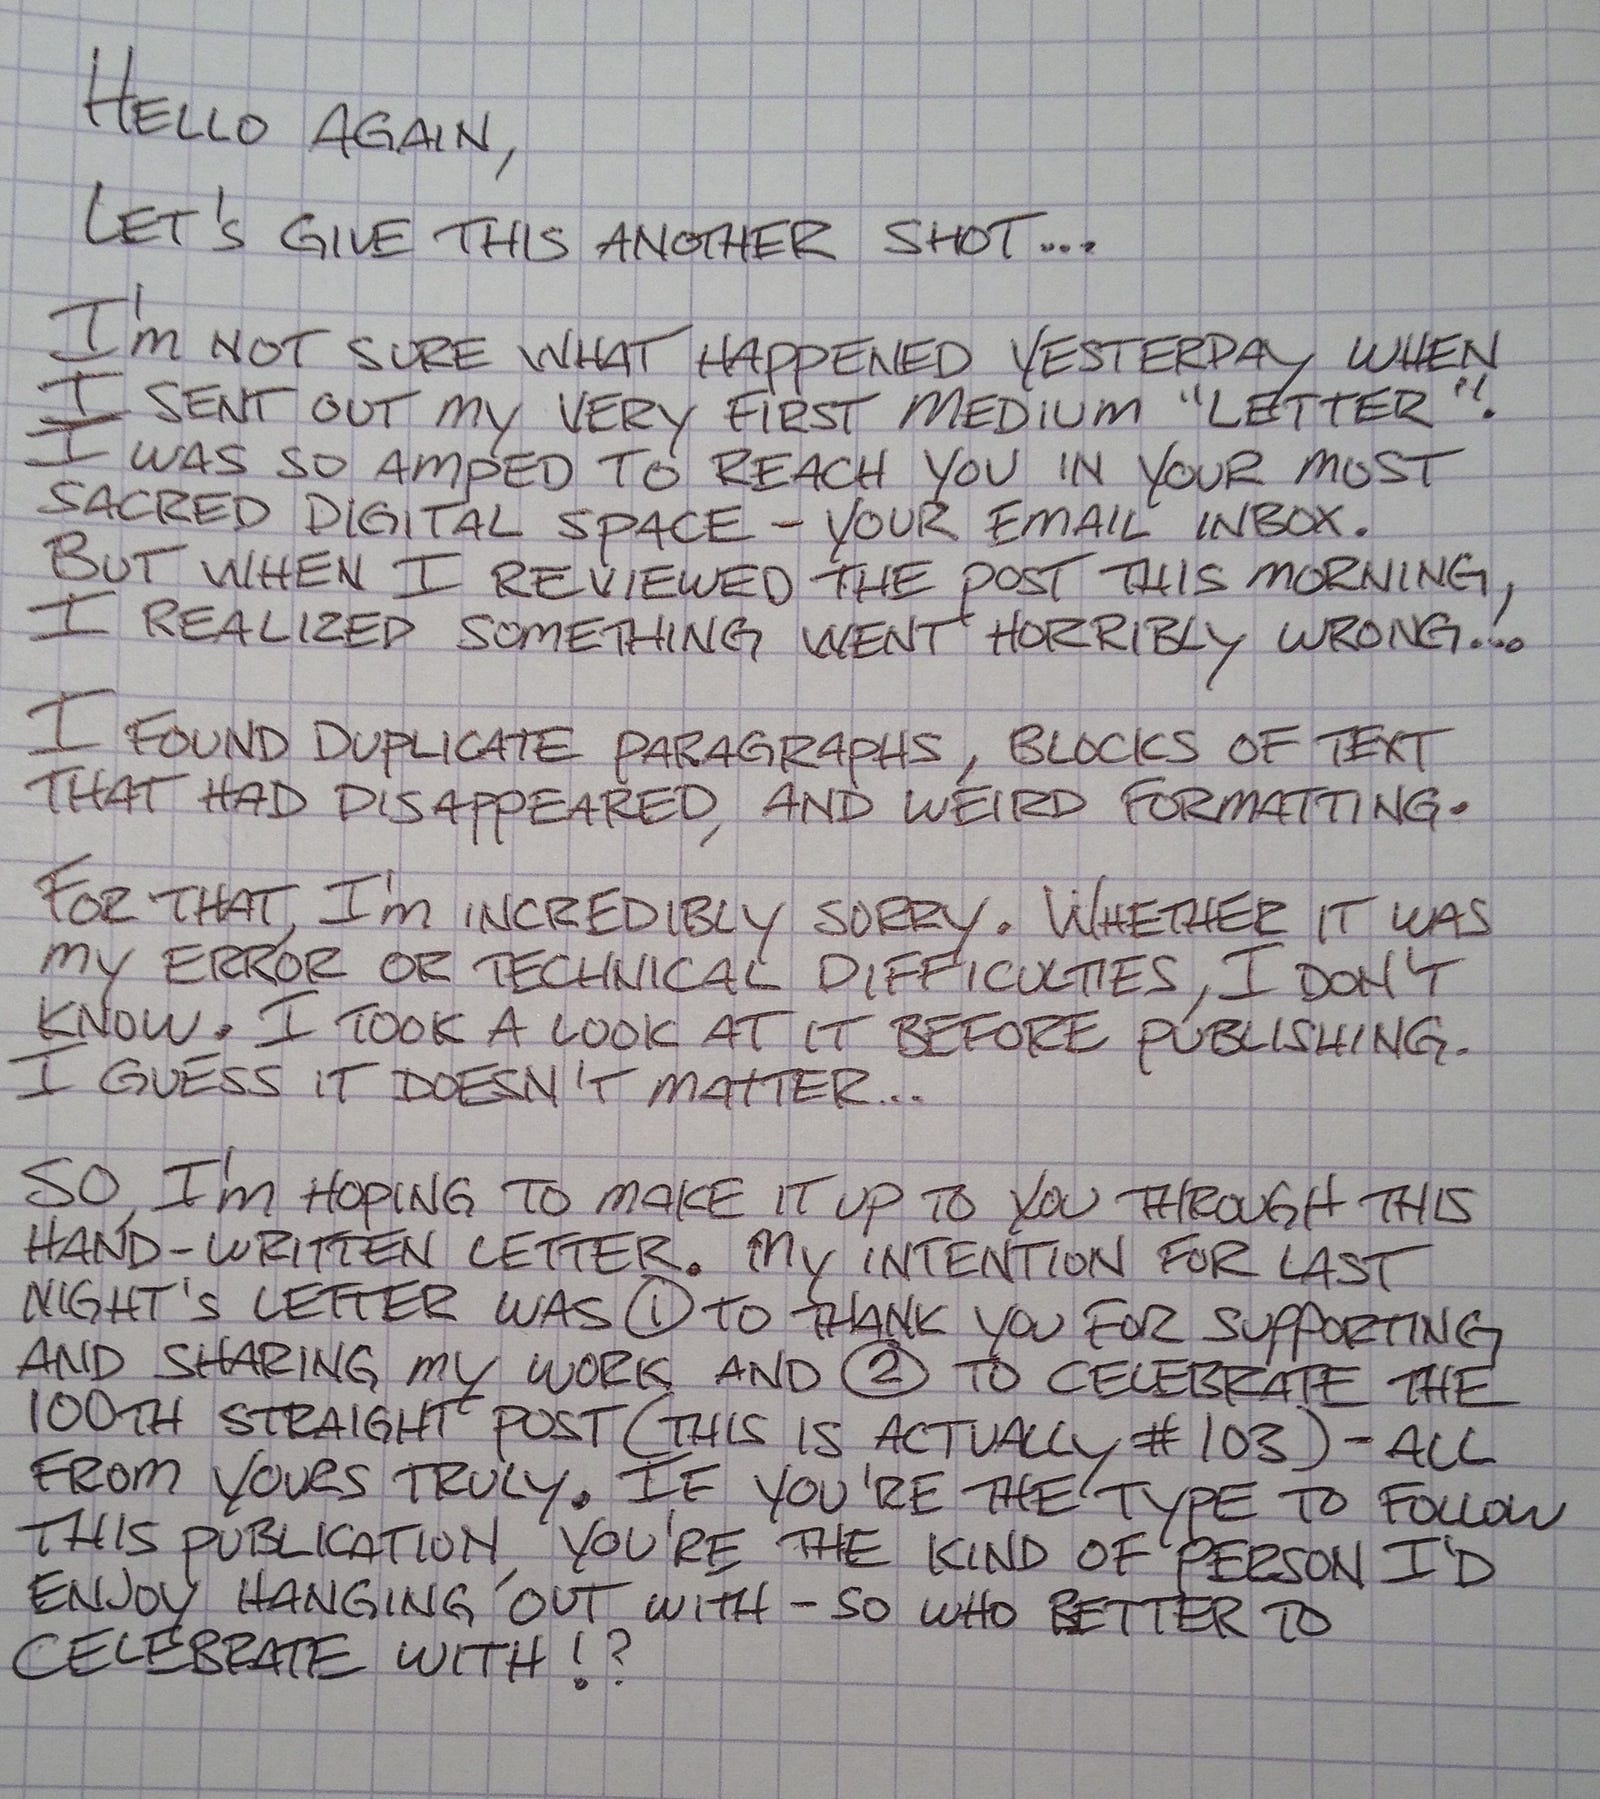 HELLO AGAIN,
LET'S GIVE THIS ANOTHER SHOT...
I'm NOT SURE WHAT HAPPENED YESTERDAY WHEN
I SENT OUT MY VERY FIRST MEDIUM "LETTER".
I WAS SO AMPED TO REACH YOU IN YOUR MOST
SACRED DIGITAL SPACE - YOUR EMAIL INBOX.
BUT WHEN I REVIEWED THE POST THIS MORNING,
I REALIZED SOMETHING WENT HORRIBLY WRONG...
I FOUND DUPLICATE PARAGRAPHS, BLOCKS OF TEXT
THAT HAD DISAPPEARED, AND WEIRD FORMATTING.
FOR THAT, I'm INCREDIBLY SORRY. WHETHER IT WAS
MY ERROR OR TECHNICAL DIFFICULTIES, I DON'T
KNOW. I TOOK A LOOK AT IT BEFORE PUBLISHING.
I GUESS IT DOESN'T MATTER...
SO, I'm HOPING TO MAKE IT UP TO YOU THROUGH THIS
HAND-WRITTEN LETTER. MY INTENTION FOR LAST
NIGHT'S LETTER WAS ① TO THANK YOU FOR SUPPORTING
AND SHARING MY WORK AND ② TO CELEBRATE THE
100TH STRAIGHT POST (THIS IS ACTUALLY #103) - ALL
FROM YOURS TRULY. IF YOU'RE THE TYPE TO FOLLOW
THIS PUBLICATION, YOU'RE THE KIND OF PERSON I'D
ENJOY HANGING OUT WITH - SO WHO BETTER TO
CELEBRATE WITH!?